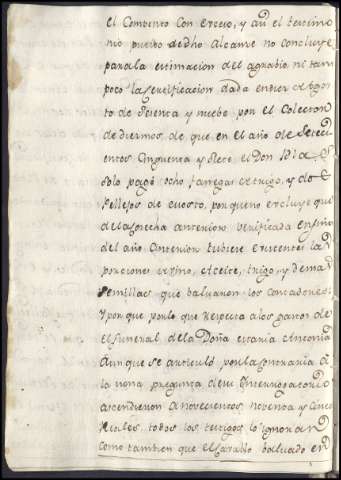 el Comvento Con exceso, y aun el terzimo
nio puesto de dho Alcanze no concluye
para la estimacion del agrabio ni tam
poco la zertificazion dada en diez de Agos
to de sesenta y nuebe por el Colector
de diezmos de que en el año de setezi
entos Cinquenta y siete el Don
solo pagó ocho fanegas de trigo, y dos
Pellejos de mosto, porque no excluye que
de la cosecha antezior verificada en fin
del año anterior tubiese existentes las
porciones de vino, azeite, trigo, y demas
Semillas que baluaron los contadores:
Y porque por lo que Respecta a los gastos de
el funeral de la Doña Maria Antonia
Aunque se articuló por la contraria á
la nona pregunta de su Interrogatorio
ascendieron a novecientos, noventa y cinco
Reales, todos los testigos lo ignoran
como tambien que el Caballo baluado en